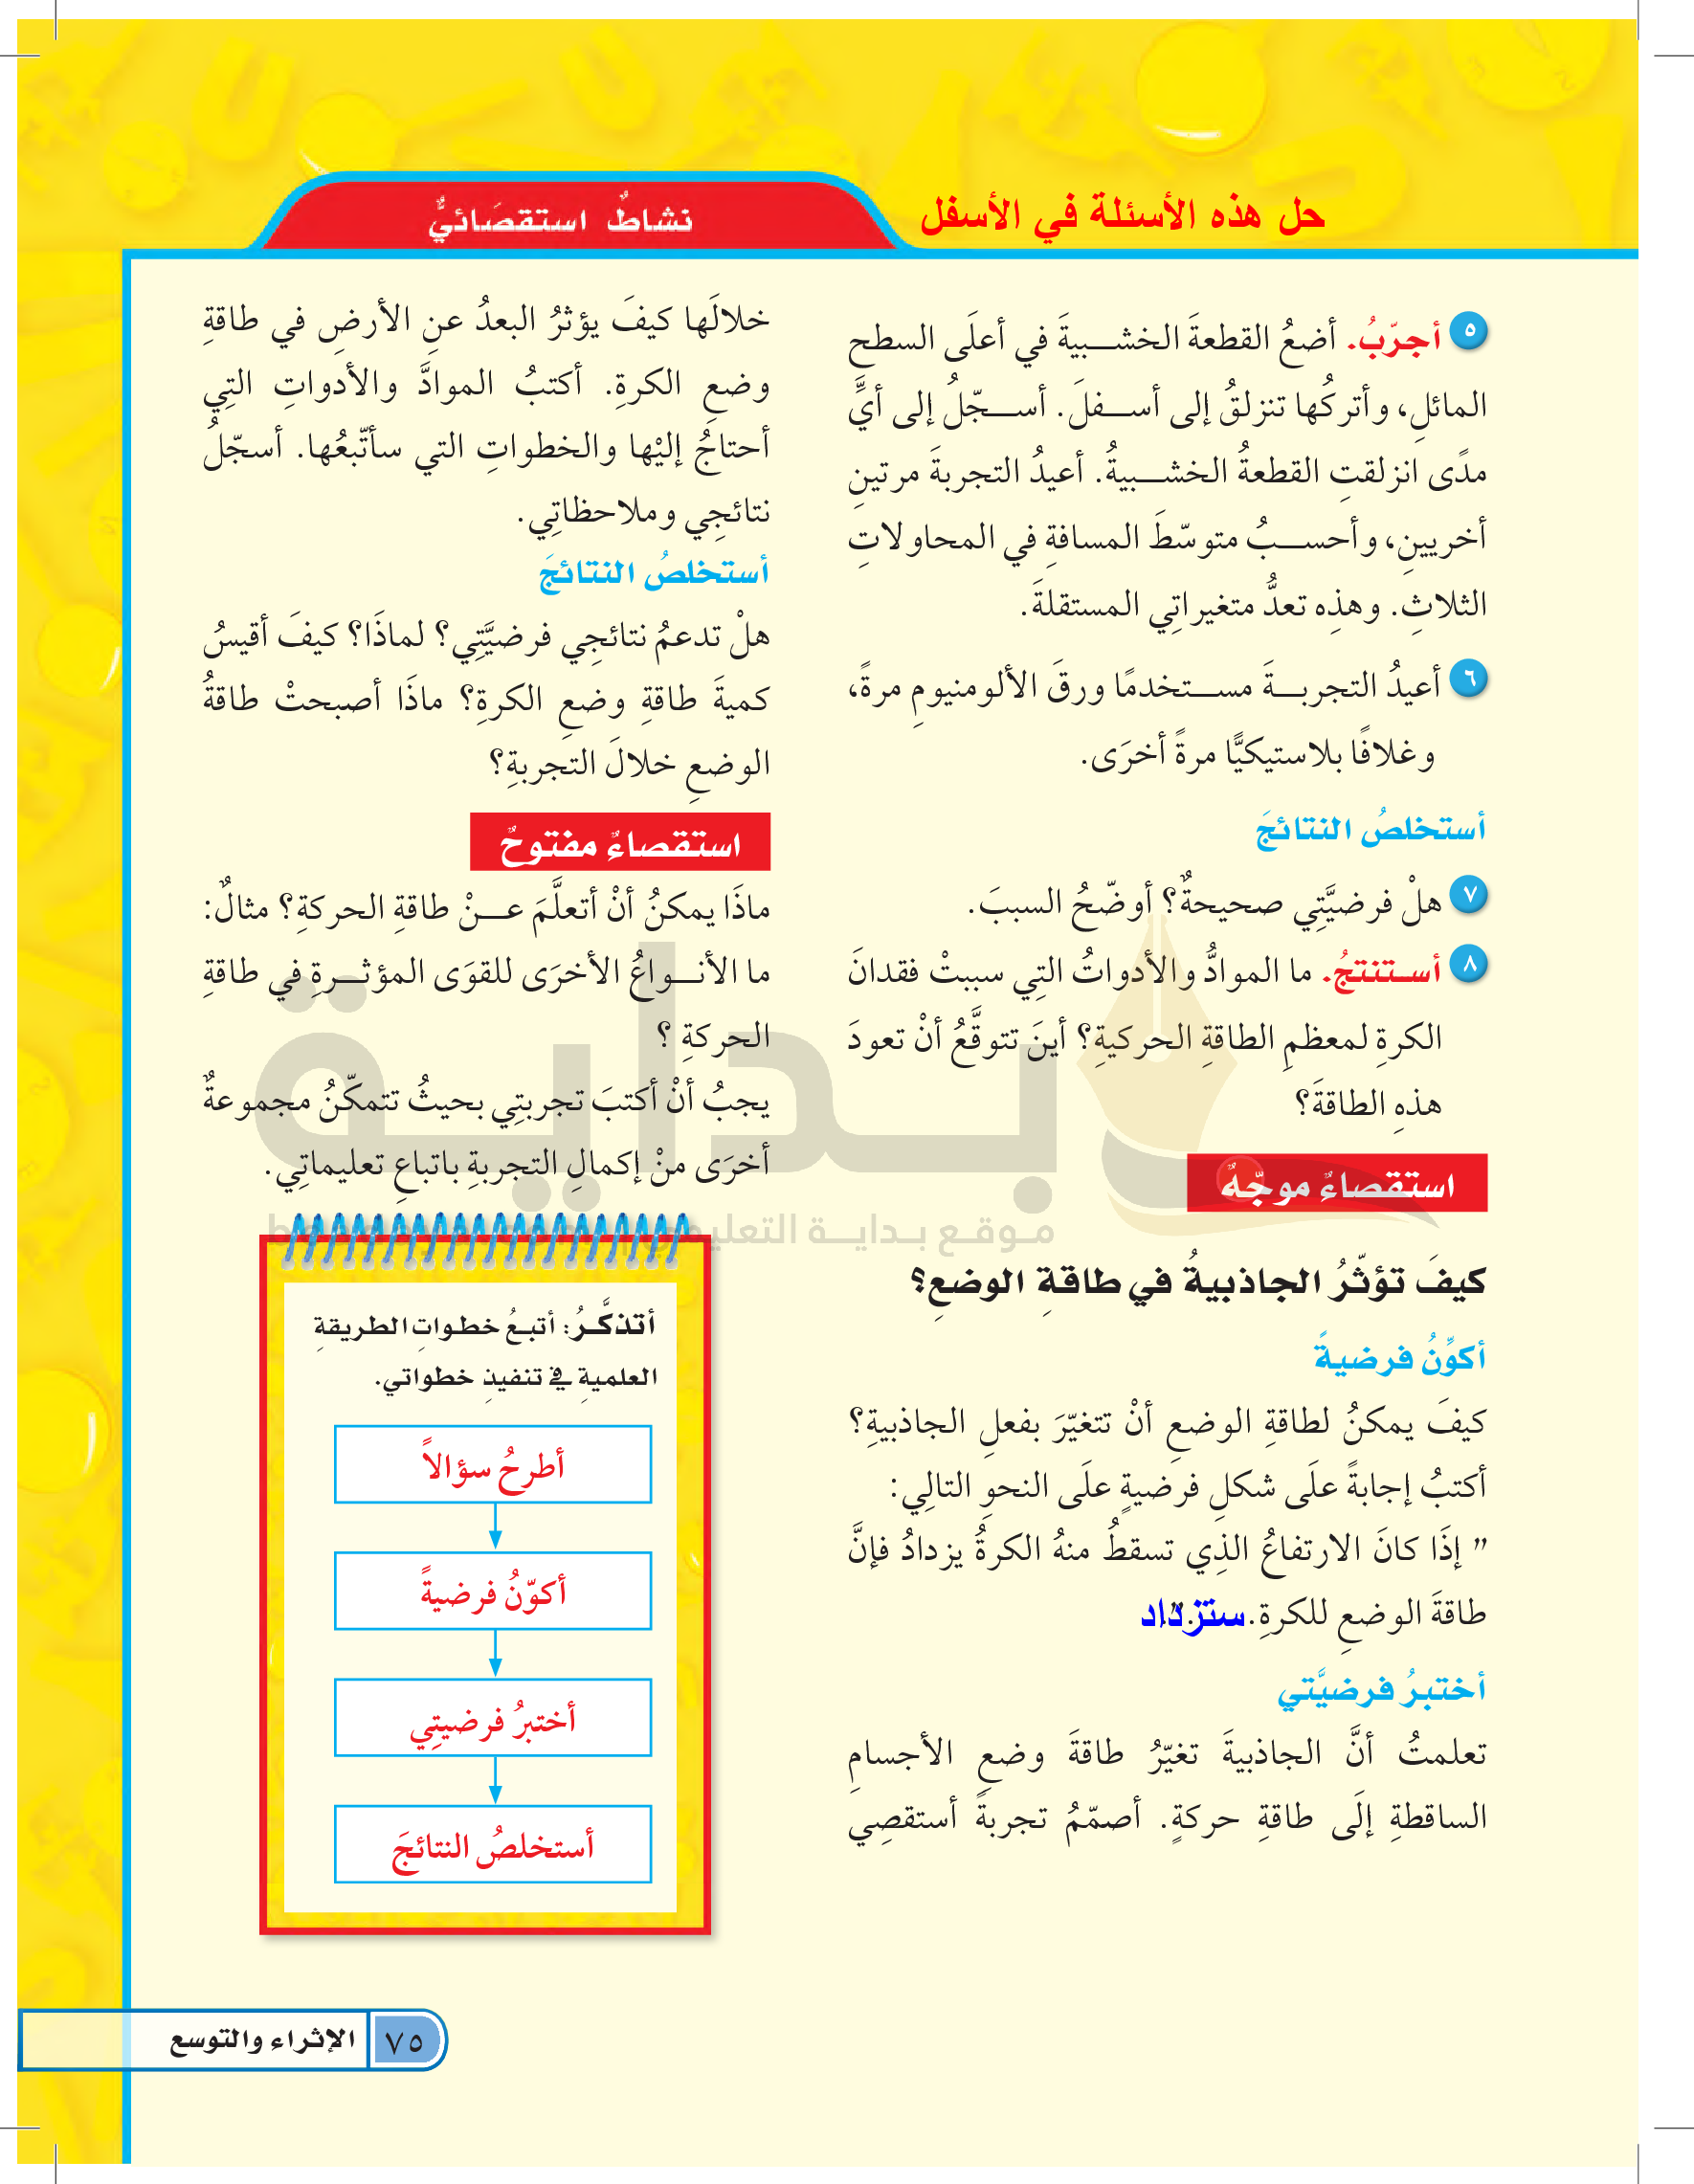 حل هذه الأسئلة في الأسفل
نشاطٌ استقصَائيٌّ
٥ أجرّبُ. أضعُ القطعةَ الخشبيةَ في أعلَى السطحِ
المائلِ، وأتركُها تنزلقُ إلى أسفلَ. أسجّلُ إلى أيِّ
مدًى انزلقتِ القطعةُ الخشبيةُ. أعيدُ التجربةَ مرتينِ
أخريينِ، وأحسبُ متوسّطَ المسافةِ في المحاولاتِ
الثلاثِ. وهذِه تعدُّ متغيراتِي المستقلةَ.
٦ أعيدُ التجربةَ مستخدمًا ورقَ الألومنيومِ مرةً،
وغلافًا بلاستيكيًّا مرةً أخرَى.
أستخلصُ النتائجَ
٧ هلْ فرضيَّتِي صحيحةٌ؟ أوضّحُ السببَ.
٨ أستنتجُ. ما الموادُّ والأدواتُ التِي سببتْ فقدانَ
الكرةِ لمعظمِ الطاقةِ الحركيةِ؟ أينَ تتوقَّعُ أنْ تعودَ
هذهِ الطاقةَ؟
استقصاءٌ موجّهٌ
كيفَ تؤثّرُ الجاذبيةُ في طاقةِ الوضعِ؟
أكوِّنُ فرضيةً
كيفَ يمكنُ لطاقةِ الوضعِ أنْ تتغيّرَ بفعلِ الجاذبيةِ؟
أكتبُ إجابةً علَى شكلِ فرضيةٍ علَى النحوِ التالِي:
" إذَا كانَ الارتفاعُ الذِي تسقطُ منهُ الكرةُ يزدادُ فإنَّ
طاقةَ الوضعِ للكرةِ. ستزداد ."
أختبرُ فرضيَّتي
تعلمتُ أنَّ الجاذبيةَ تغيّرُ طاقةَ وضعِ الأجسامِ
الساقطةِ إلَى طاقةِ حركةٍ. أصمّمُ تجربةً أستقصِي
خلالَها كيفَ يؤثرُ البعدُ عنِ الأرضِ في طاقةِ
وضعِ الكرةِ. أكتبُ الموادَّ والأدواتِ التِي
أحتاجُ إليْها والخطواتِ التي سأتّبعُها. أسجّلُ
نتائجِي وملاحظاتِي.
أستخلصُ النتائجَ
هلْ تدعمُ نتائجِي فرضيَّتِي؟ لماذَا؟ كيفَ أقيسُ
كميةَ طاقةِ وضعِ الكرةِ؟ ماذَا أصبحتْ طاقةُ
الوضعِ خلالَ التجربةِ؟
استقصاءٌ مفتوحٌ
ماذَا يمكنُ أنْ أتعلَّمَ عنْ طاقةِ الحركةِ؟ مثالٌ:
ما الأنواعُ الأخرَى للقوَى المؤثرةِ في طاقةِ
الحركةِ ؟
يجبُ أنْ أكتبَ تجربتِي بحيثُ تتمكّنُ مجموعةٌ
أخرَى منْ إكمالِ التجربةِ باتباعِ تعليماتِي.
بداية
موقع بداية التعليمي
أتذكَّرُ: أتبعُ خطواتِ الطريقةِ
العلميةِ في تنفيذِ خطواتي.
أطرحُ سؤالاً
أكوّنُ فرضيةً
أختبرُ فرضيتِي
أستخلصُ النتائجَ
٧٥ الإثراء والتوسع